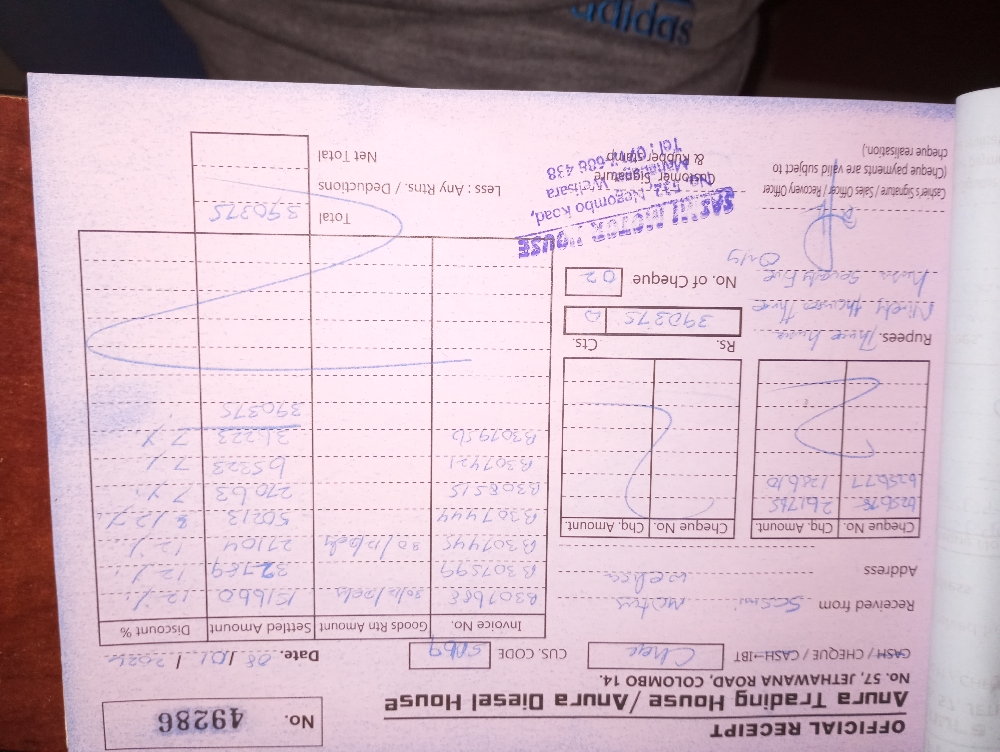 adidas
OFFICIAL RECEIPT
Anura Trading House / Anura Diesel House
No. 57, JETHAWANA ROAD, COLOMBO 14.
No. 49286
CASH / CHEQUE / CASH-IBT Cheq
CUS. CODE 5069
Date. 08 / 01 / 2024
Received from Sasmi Motors
Address Welisa
Cheque No. Chq. Amount. Cheque No. Chq. Amount.
625676 261765
625677 128610
Rs. Cts.
390375 0
No. of Cheque 02
Rupees. Three hun
Ninety thousand three
hun seventy five
Only
Invoice No. Goods Rtn Amount Settled Amount Discount %
B307688 151660 12 %
B307599 32769 12 %
B307445 27104 12 %
B307444 50213 12 %
B308515 27063 7 %
B307421 65223 7 %
B307956 31223 7 %
390375
Total 390375
Less : Any Rtns. / Deductions
Net Total
Cashier's Signature / Sales Officer / Recovery Officer
(Cheque payments are valid subject to
cheque realisation.)
Customer Signature
& Rubber stamp
MOTOR HOUSE
No. 532, Negombo Road,
Welisara